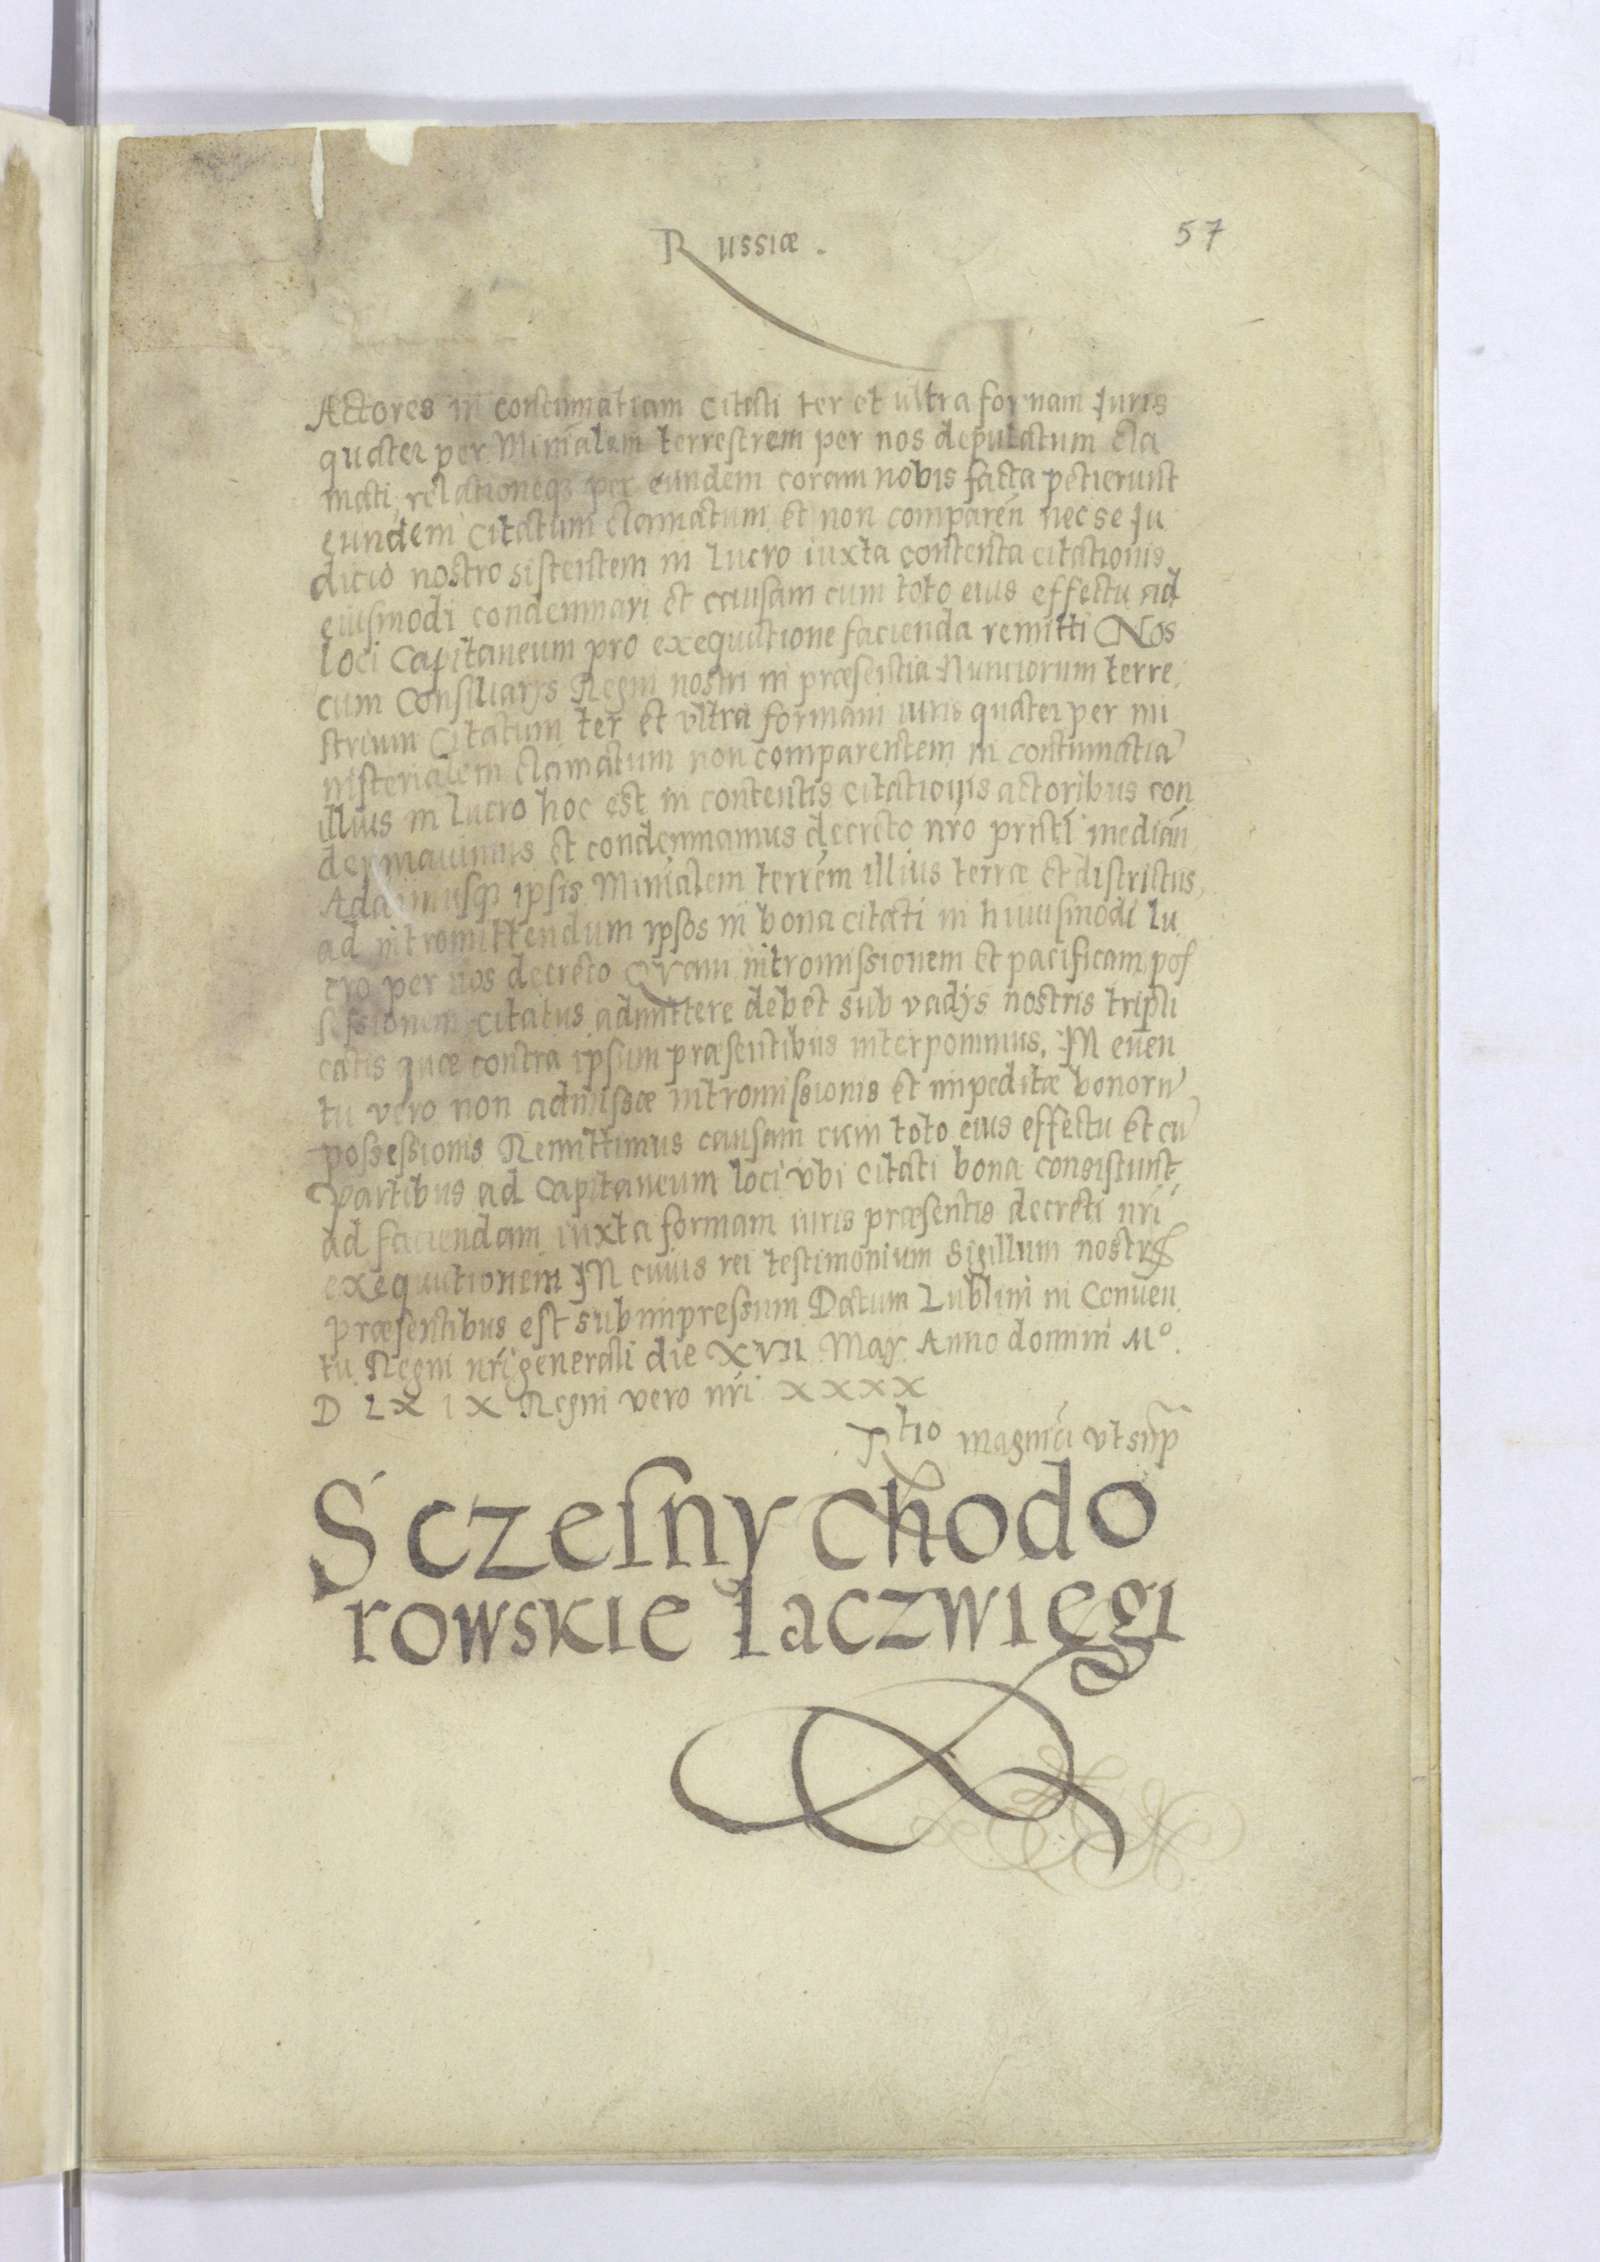 Russiæ.
57
Actores in contumatiam citati ter et ultra formam Juris
quater per Minialem terrestrem per nos deputatum cla
mati, relationeq3 per eundem coram nobis facta petierunt
eundem citatum clamatum et non comparen̄ nec se Ju
dicio nostro sistentem in lucro iuxta contenta citationis
eiusmodi condemnari et causam cum toto eius effectu ad
loci Capitaneum pro exequutione facienda remitti Nos
cum Consiliarijs Regni nostri in præsentia Nunciorum terre
strium Citatum ter et vltra formam iuris quater per mi
nisterialem clamatum non comparentem in contumatiā
illius in lucro hoc est in contentis citationis actoribus con
demnauimus et condemnamus decreto nr̄o pr̄nti median̄
Addimusq3 ipsis Minialem terrēm illius terræ et districtus,
ad intromittendum ipsos in bona citati in huiusmodi lu
cro per nos decreto Qvam intromissionem et pacificam pos
sessionem citatus admittere debet sub vadijs nostris tripli
catis quæ contra ipsum præsentibus interponimus. IN euen
tu vero non admissæ intromissionis et impeditæ bonorū
possessionis Remittimus causam cum toto eius effectu et cū
partibus ad Capitaneum loci vbi citati bona consistunt,
ad faciendam iuxta formam iuris præsentis decreti nr̄i
exequutionem IN cuius rei testimonium Sigillum nostrꝭ
præsentibus est subimpressum Datum Lublini in Conuen
tu Regni nr̄i generali die XVII May Anno domini Mº.
D LX IX Regni vero nr̄i XXXX
Rtio magnīci vt sup̄
Sczesny chodo
rowskie laczwięgi